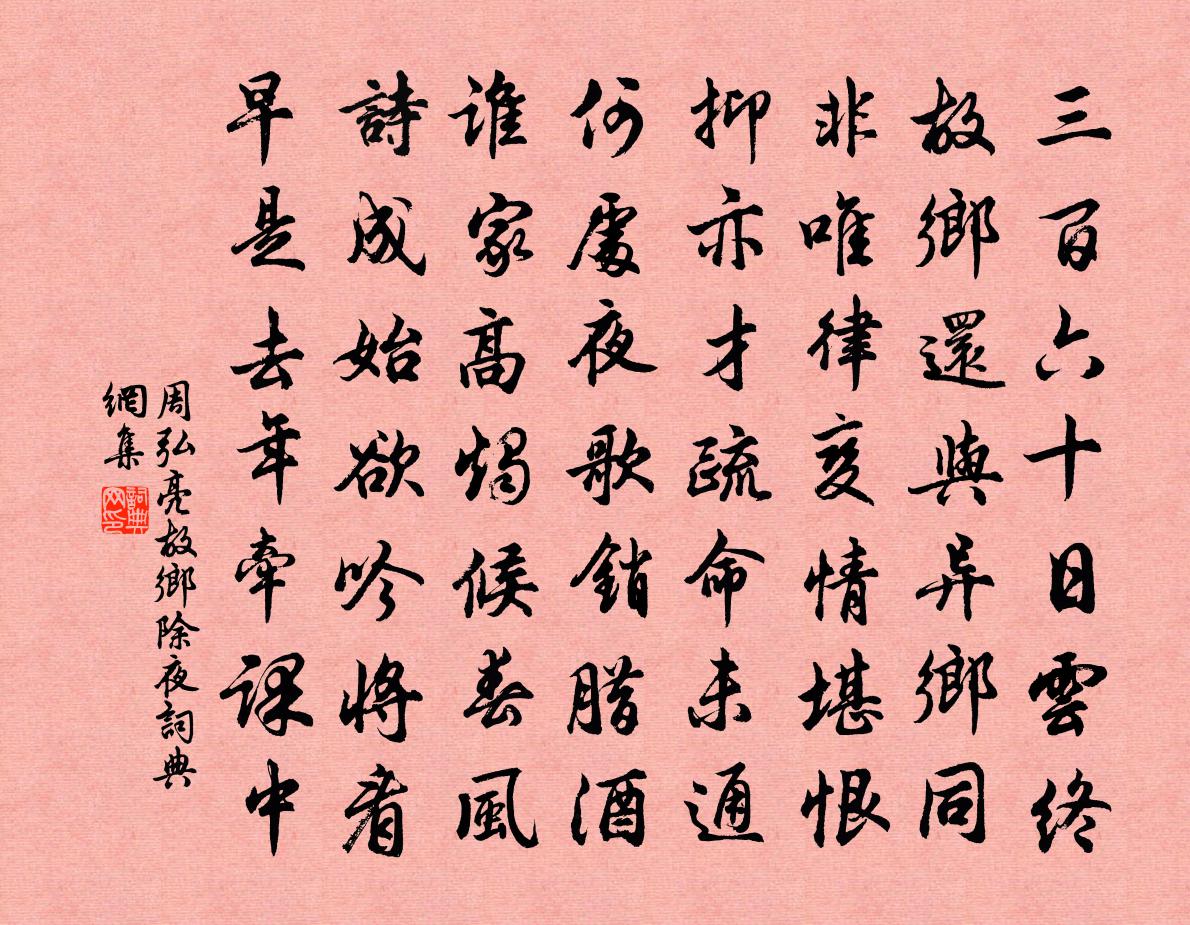 三百六十日雲終
故鄉還與异鄉同
非唯律变情堪恨
抑亦才疏命未通
何處夜歌銷腊酒
谁家高燭候春風
詩成始欲吟將看
早是去年牽課中
周弘亮故鄉除夜詞典
網集
詞典
网印